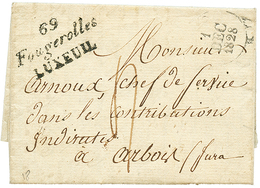 69
Fougerolles
LUXEUIL
1
DEC
1828
Monsieur
Arnoux chef de service
dans les contributions
Indirectes
à arbois
jura